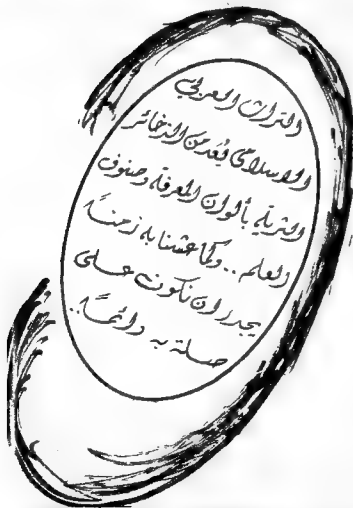 التراث العربي
الاسلامي يُعد من الذخائر
الثرية بألوان المعرفة وصنوف
العلم .. وكما عشنا به زمنًا
يجدر ان نكون على
صلة به دائمًا ..